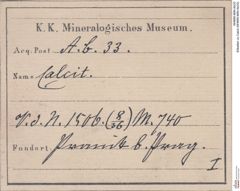 K. K. Mineralogisches Museum.
Acq. Post A. b. 33.
Name Calcit.
V. d. N. 1506. (8/36) M. 740
Fundort b. Prag.
I